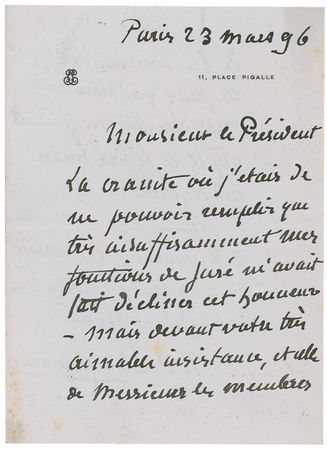 Paris 23 mars 96
11, PLACE PIGALLE
Monsieur le Président
La crainte où j'étais de
ne pouvoir remplir que
très insuffisamment mes
fonctions de Juré m'avait
fait décliner cet honneur
– mais devant votre très
aimable insistance, et celle
de Messieurs les membres